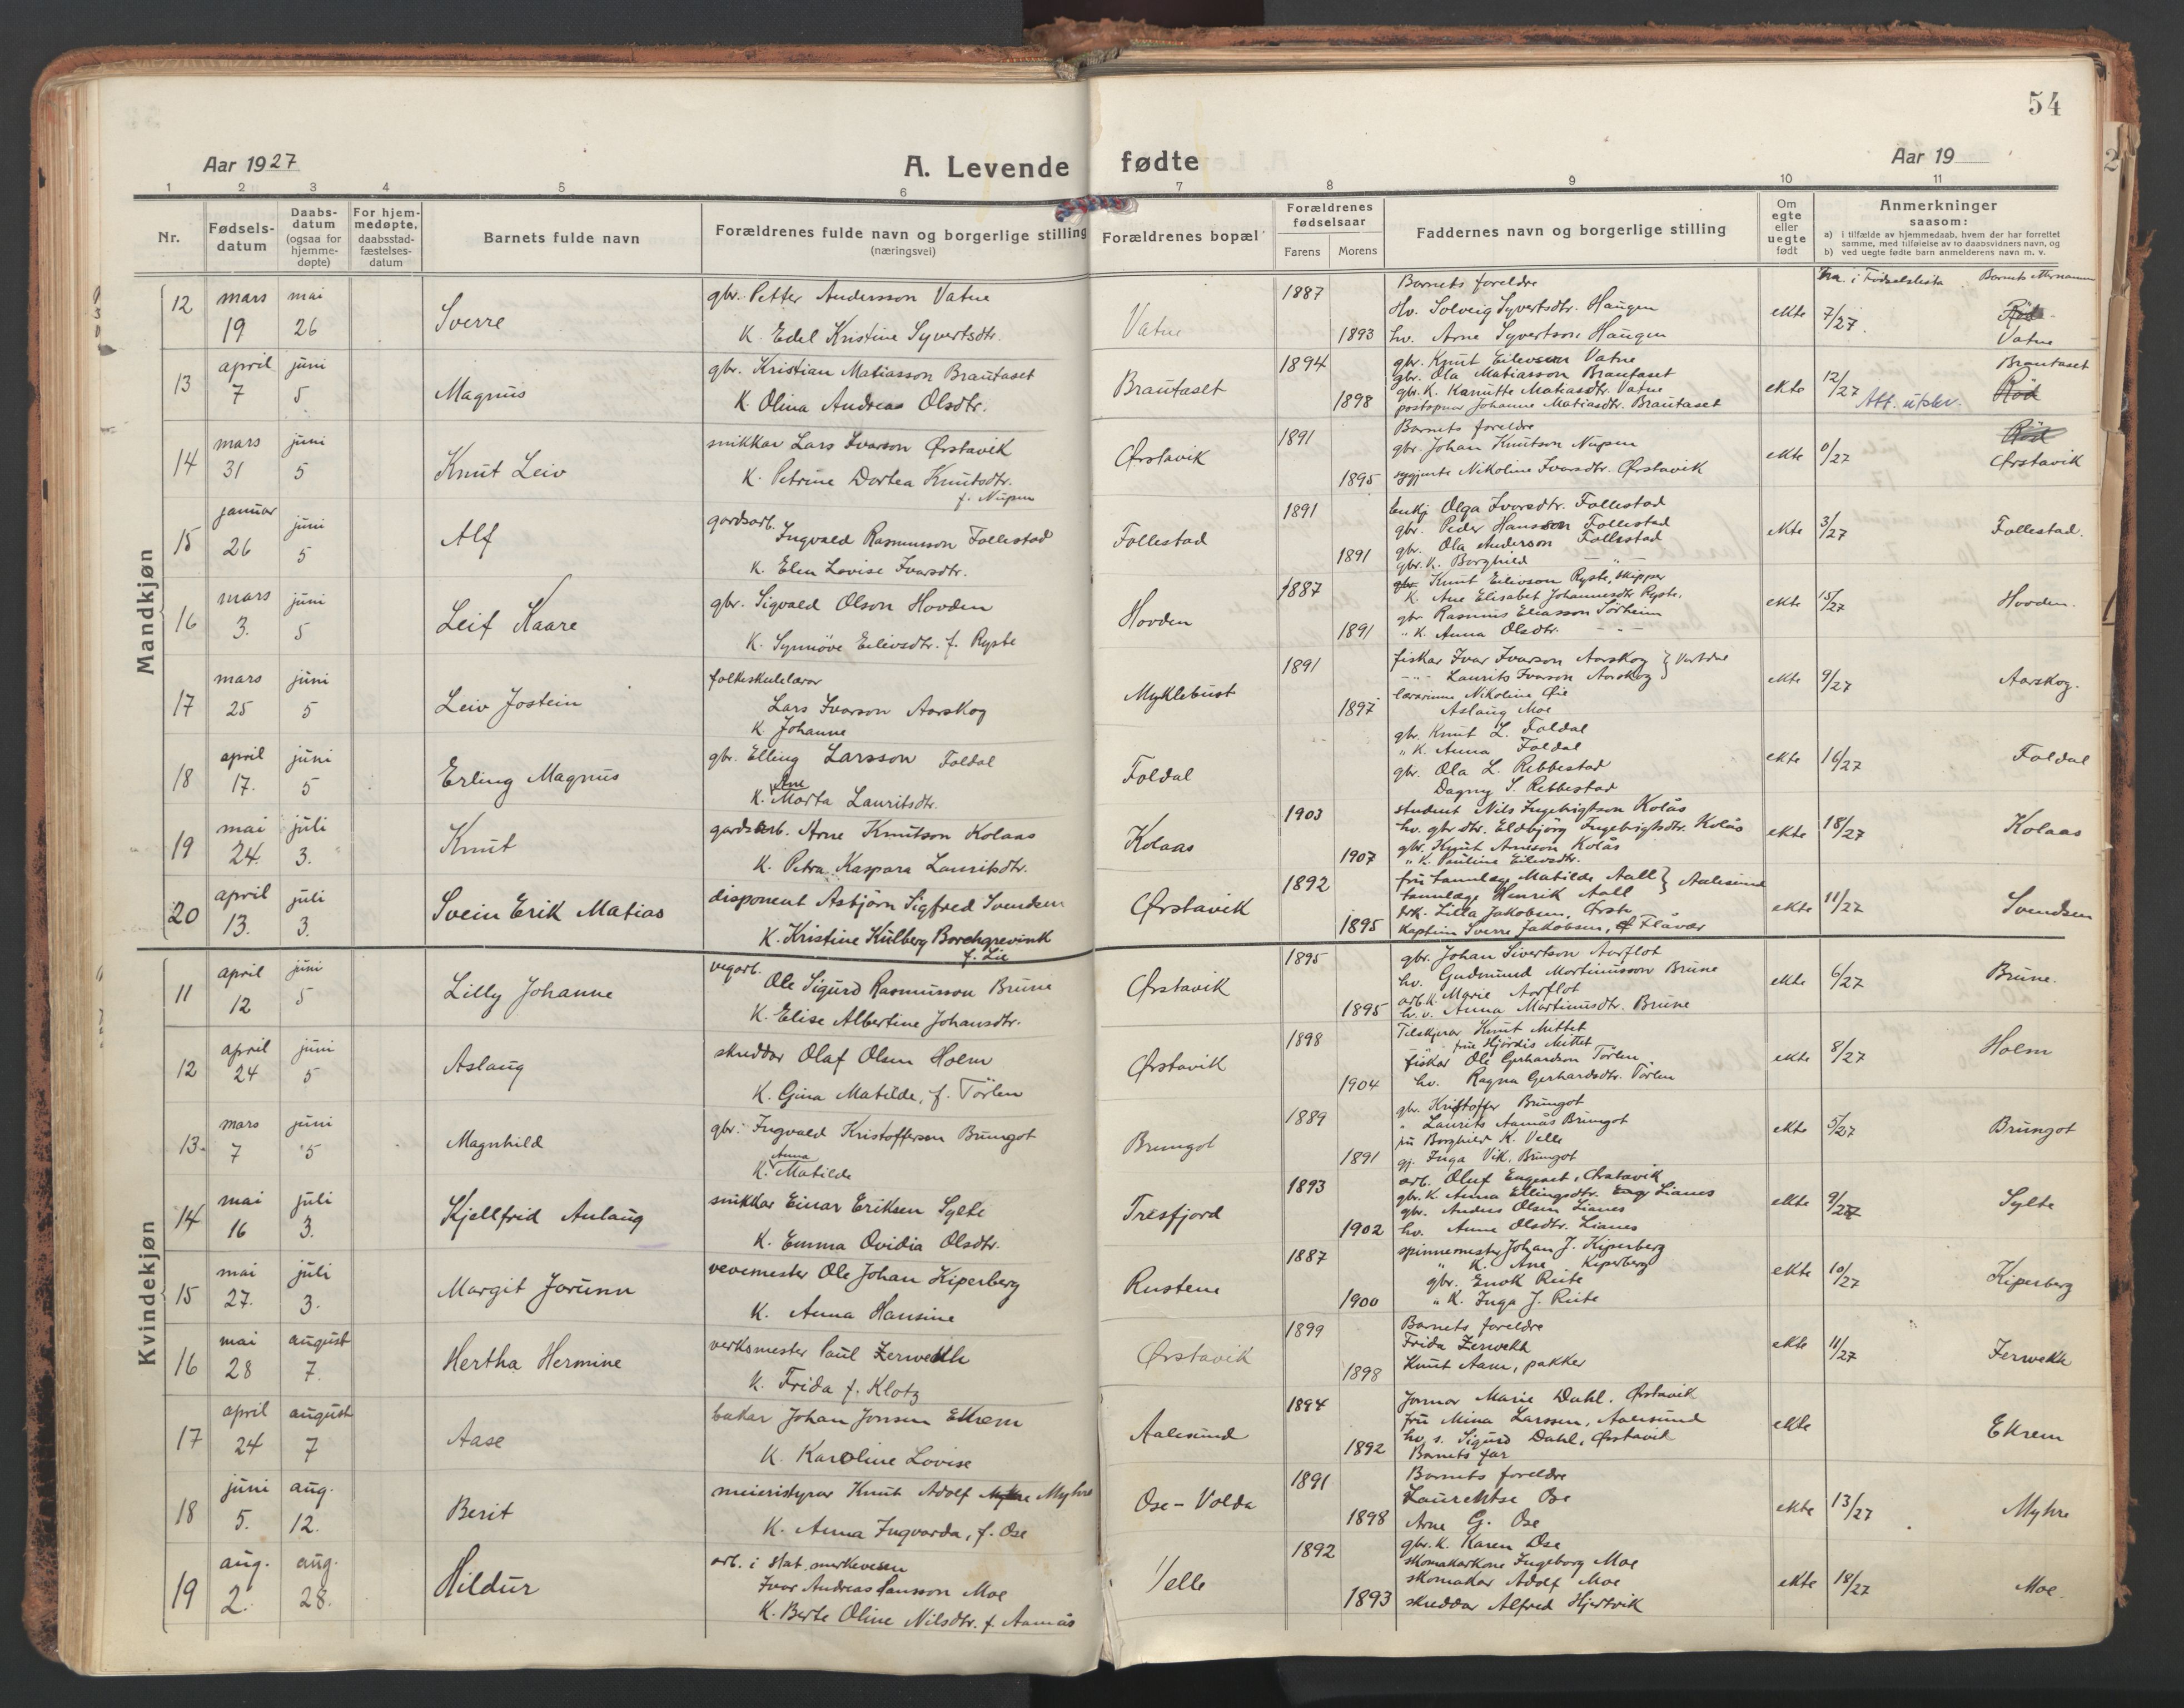 54
Aar 1927
A. Levende fødte
Aar 19
1 2 3 4 5 6 7 8 9 10 11
Nr.
Fødsels-datum
Daabs-datum (ogsaa for hjemme-døpte)
For hjem-medøpte, daabsstad-fæstelses-datum
Barnets fulde navn
Forældrenes fulde navn og borgerlige stilling (næringsvei)
Forældrenes bopæl
Forældrenes fødselsaar
Farens
Morens
Faddernes navn og borgerlige stilling
Om egte eller uegte født
Anmerkninger saasom:
a) i tilfælde av hjemmedaab, hvem der har forrettet samme, med tilføielse av to daabsvidners navn, og
b) ved uegte fødte barn anmelderens navn m. v.
Nr. i Fødselslista Barnets etternamn
Mandkjøn
12 mars 19 mai 26 Sverre
gbr. Petter Andersson Vatne
K. Edel Kristine Syvertsdtr.
Vatne 1887 1893
Barnets foreldre
Hv. Solveig Syvertsdtr. Haugen
hv. Arne Syvertson Haugen
ekte 7/27 Vatne
13 april 7 juni 5 Magnus
gbr. Kristian Matiasson Brautaset
K. Olina Andreas Olsdtr.
Brautaset 1894 1898
gbr. Knut Eilevson Vatne
gbr. Ola Matiasson Brautaset
gbr. K. Kanutte Matiasdtr. Vatne
postopnar Johanne Matiasdtr. Brautaset
ekte 12/27 Att. utskr. Brautaset
14 mars 31 juni 5 Knut Leiv
snikkar Lars Ivarson Ørstavik
K. Petrine Dortea Knutsdtr.
f. Nupen
Ørstavik 1891 1895
Barnets foreldre
gbr. Johan Knutson Nupen
sygjente Nikoline Ivarsdtr. Ørstavik
ekte 0/27 Ørstavik
15 januar 26 juni 5 Alf
gardsarb. Ingvald Rasmusson Follestad
K. Elen Lovise Ivarsdtr.
Follestad 1891 1891
Enkj. Olga Ivarsdtr. Follestad
gbr. Peder Hansson Follestad
gbr. Ola Anderson Follestad
gbr. K. Borghild " —
ekte 3/27 Follestad.
16 mars 3. juni 5 Leif Kaare
gbr. Sigvald Olson Hovden
K. Synnöve Eilevsdtr. f. Ryste
Hovden 1887 1891
gbr. Knut Eilevson Ryste, skipper
K. Ane Elisabet Johannesdtr Ryste.
gbr Rasmus Eliasson Sörheim
" K. Anna Olsdtr. — —
ekte 15/27 Hovden.
17 mars 25 juni 5 Leiv Jostein
folkeskulelærar
Lars Ivarson Aarskog
K. Johanne
Myklebust 1891 1897
fiskar Ivar Ivarson Aarskog } Vartdal
—"— Laurits Ivarson Aarskog
lærarinne Nikoline Øie
Aslaug Moe
ekte 9/27 Aarskog.
18 april 17. juni 5 Erling Magnus
gbr. Elling Larsson Foldal
K. Ane Marta Lauritsdtr.
Foldal
gbr. Knut L. Foldal
" K. Anna Foldal
gbr. Ola L. Rebbestad
Dagny S. Rebbestad
ekte 16/27 Foldal
19 mai 24. juli 3. Knut
gardsarb. Arne Knutson Kolaas
K. Petra Kaspara Lauritsdtr.
Kolaas 1903 1907
student Nils Ingebrigtson Kolås
hv. gbr dtr. Eldbjörg Ingebrigtsdtr. Kolås
gbr. Knut Arneson Kolås
" K. Pauline Eilevsdtr.
ekte 18/27 Kolaas
20 april 13. juli 3. Svein Erik Matias
disponent Asbjörn Sigfred Svendsen
K. Kristine Kulberg Borchgrevink
f. Lie
Ørstavik 1892 1895
fru tannlæge Matilde Aall } Aalesund
tannlæge Henrik Aall
frk. Lilla Jakobsen, Ørsta
kaptein Sverre Jakobsen, Flåvær
ekte 11/27 Svendsen
Kvindekjøn
11 april 12 juni 5 Lilly Johanne
vegarb. Ole Sigurd Rasmusson Brune
K. Elise Albertine Johansdtr.
Ørstavik 1895 1895
gbr. Johan Sivertson Aarflot
hv. Gudmund Martinusson Brune
arb. K. Marie Aarflot
h. v. Anna Martinusdtr. Brune
ekte 6/27 Brune.
12 april 24 juni 5 Aslaug
skreddar Olaf Olsen Holm
K. Gina Matilde, f. Törlen
Ørstavik 1898 1904
Tilskjerar Knut Mittet
" fru Hjördis Mittet
fiskar Ole Gerhardson Törlen
hv. Ragna Gerhardsdtr. Törlen
ekte 8/27 Holm
13. mars 7 juni 5 Magnhild
gbr. Ingvald Kristoffersen Brungot
K. Anna Matilde
Brungot 1889 1891
gbr. Kristoffer Brungot
" Laurits Aamås Brungot
fru Borghild K. Velle
gj. Inga Vik, Brungot
ekte 5/27 Brungot
14 mai 16 juli 3. Kjellfrid Aslaug
snikkar Einar Eriksen Sylte
K. Emma Ovidia Olsdtr.
Tresfjord 1893 1902
arb. Oluf Engeset, Ørstavik
gbr. K. Anna Ellingsdtr. Lianes
gbr. Anders Olsen Lianes
hv. Anna Olsdtr. Lianes
ekte 9/27 Sylte
15 mai 27. juli 3. Margit Jorunn
vevemester Ole Johan Kiperberg
K. Anna Hansine
Rustene 1887 1900
spinnemester Johan J. Kiperberg
" K. Ane Kiperberg
gbr. Enok Rite
" K. Inga J. Rite
ekte 10/27 Kiperberg
16 mai 28 august 7. Hertha Hermine
verksmester Paul Zerwekh
K. Frida f. Klotz
Ørstavik 1899 1898
Barnets foreldre
Frida Zerwekh
Knut Aam, pakker
ekte 11/27 Zerwekh
17 april 24 august 7 Aase
bakar Johan Jonsen Ekrem
K. Karoline Lovise
Aalesund 1894 1892
Jormor Marie Dahl. Ørstavik
fru Mina Larssen, Aalesund
hv. s. Sigurd Dahl, Ørstavik
Barnets far
ekte Ekrem
18 juni 5. aug. 12. Berit
meieristyrar Knut Adolf Myhre
K. Anna Ingvarda, f. Ose
Ose - Volda 1891 1898
Barnets foreldre
Laurentse Ose
Arne G. Ose
ekte 13/27 Myhre
19 aug. 2. aug. 28. Hildur
arb. i stat. merkevesen
Ivar Andreas Hansson Moe
K. Berte Oline Nilsdtr. f. Aamås
Velle 1892 1893
gbr. K. Karen Ose
skomakarkone Ingeborg Moe
skomakar Adolf Moe
skreddar Alfred Hjertvik
ekte 18/27 Moe.